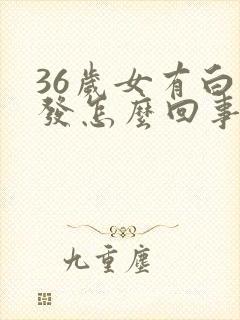 36歲女有白
發怎麼回事
九重塵